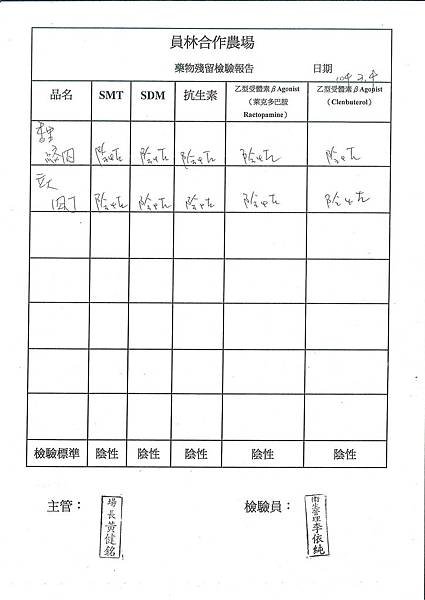 員林合作農場
藥物殘留檢驗報告 日期 104.2.4
品名 SMT SDM 抗生素 乙型受體素βAgonist（萊克多巴胺Ractopamine） 乙型受體素βAgonist（Clenbuterol）
陰性 陰性 陰性 陰性 陰性
陰性 陰性 陰性 陰性 陰性
檢驗標準 陰性 陰性 陰性 陰性 陰性
主管： 場長黃健銘 檢驗員： 衛生管理李依純